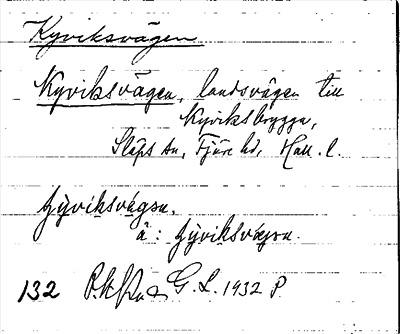 Kyviksvägen
Kyviksvägen, landsvägen till
Kyviksbrygga,
Släps sn, Fjäre hd, Hall. l.
ɡyviksvägən.
ä: ɡyviksvägən.
132 G. L. 1932 P